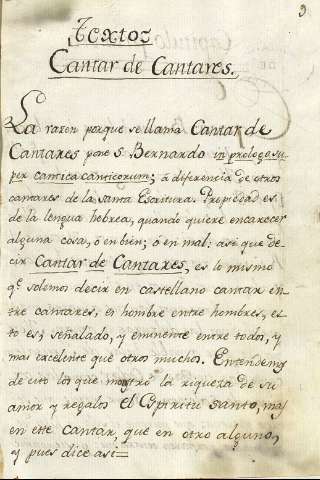 9
Textos
Cantar de Cantares.
La razon porque se llama Cantar de
Cantares pone S. Bernardo in prologo, su-
per cantica canticorum; a diferencia de otros
cantares de la santa Escritura. Propiedad es
de la lengua hebrea, quando quiere encarecer
alguna cosa, ó en bien; ó en mal: asi que de-
cir Cantar de Cantares, es lo mismo
qe. solemos decir en castellano cantar en-
tre cantares, es hombre entre hombres, es-
to es; señalado, y eminente entre todos, y
mas excelente que otros muchos. Entendemos
de esto los que mostró la riqueza de su
amor y regalos el Espiritu santo, mas
en este cantar, que en otro alguno,
y pues dice asi=